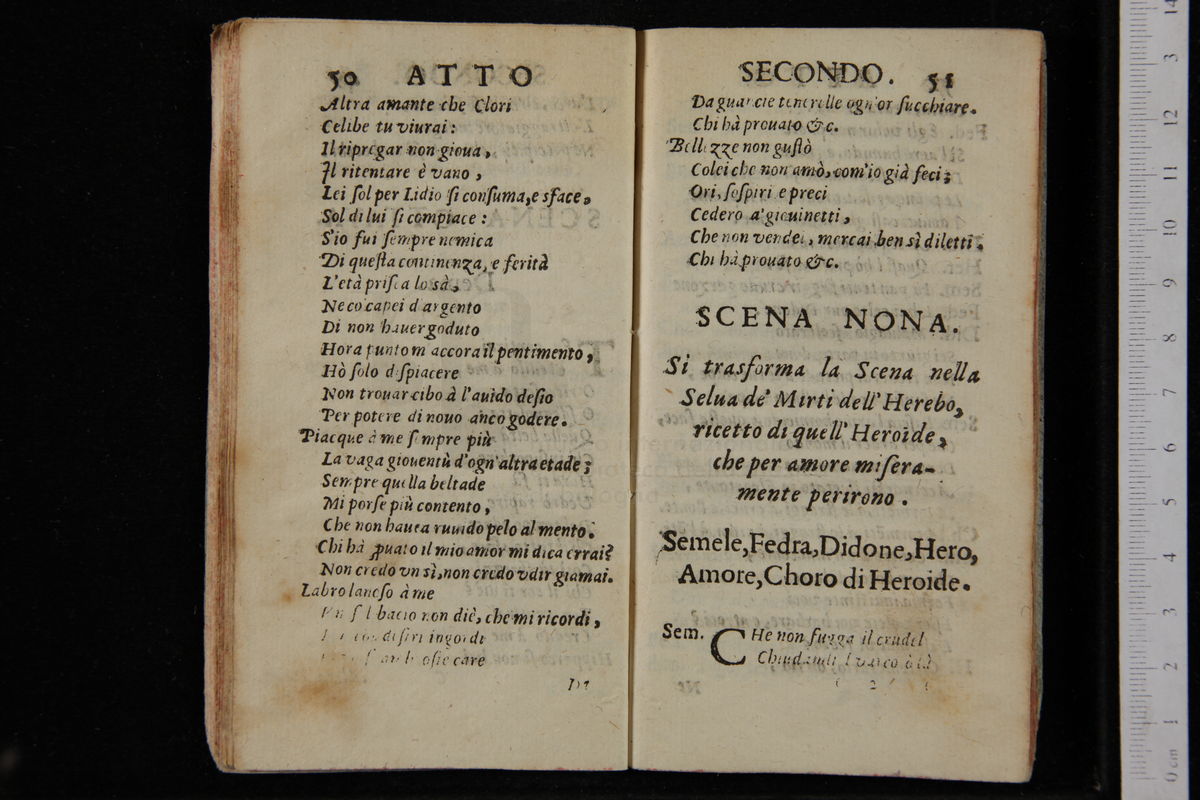 50 ATTO
Altra amante che Clori
Celibe tu viurai:
Il ripregar non gioua,
Il ritentare è vano,
Lei ſol per Lidio ſi conſuma, e sface.
Sol di lui ſi compiace:
S'io fui ſempre nemica
Di queſta continenza, e ferità
L'età priſca lo sà,
Ne co capei d'argento
Di non hauer goduto
Hora punto m'accora il pentimento,
Hò ſolo deſpiacere
Non trouar cibo à l'auido deſio
Per potere di nouo anco godere.
Piacque à me ſempre più
La vaga giouentù d'ogn'altra etade;
Sempre quella beltade
Mi porſe più contento,
Che non hauea ruuido pelo al mento.
Chi hà ꝓuato il mio amor mi dica errai?
Non credo vn sì, non credo vdir giamai.
Labro lanoſo à me
bacio non diè, che mi ricordi,
deſiri ingordi
care
SECONDO. 51
Da guancie tenerelle ogn'or ſucchiare.
Chi hà prouato &c.
Bellezze non guſtò
Colei che non amò, com'io già feci;
Ori, ſoſpiri e preci
Cedero a' giouinetti,
Che non vendei, mercai ben sì diletti.
Chi hà prouato &c.
SCENA NONA.
Si trasforma la Scena nella
Selua de' Mirti dell' Herebo,
ricetto di quell' Heroide,
che per amore miſera-
mente perirono.
Semele, Fedra, Didone, Hero,
Amore, Choro di Heroide.
Sem. CHe non fugga il crudel